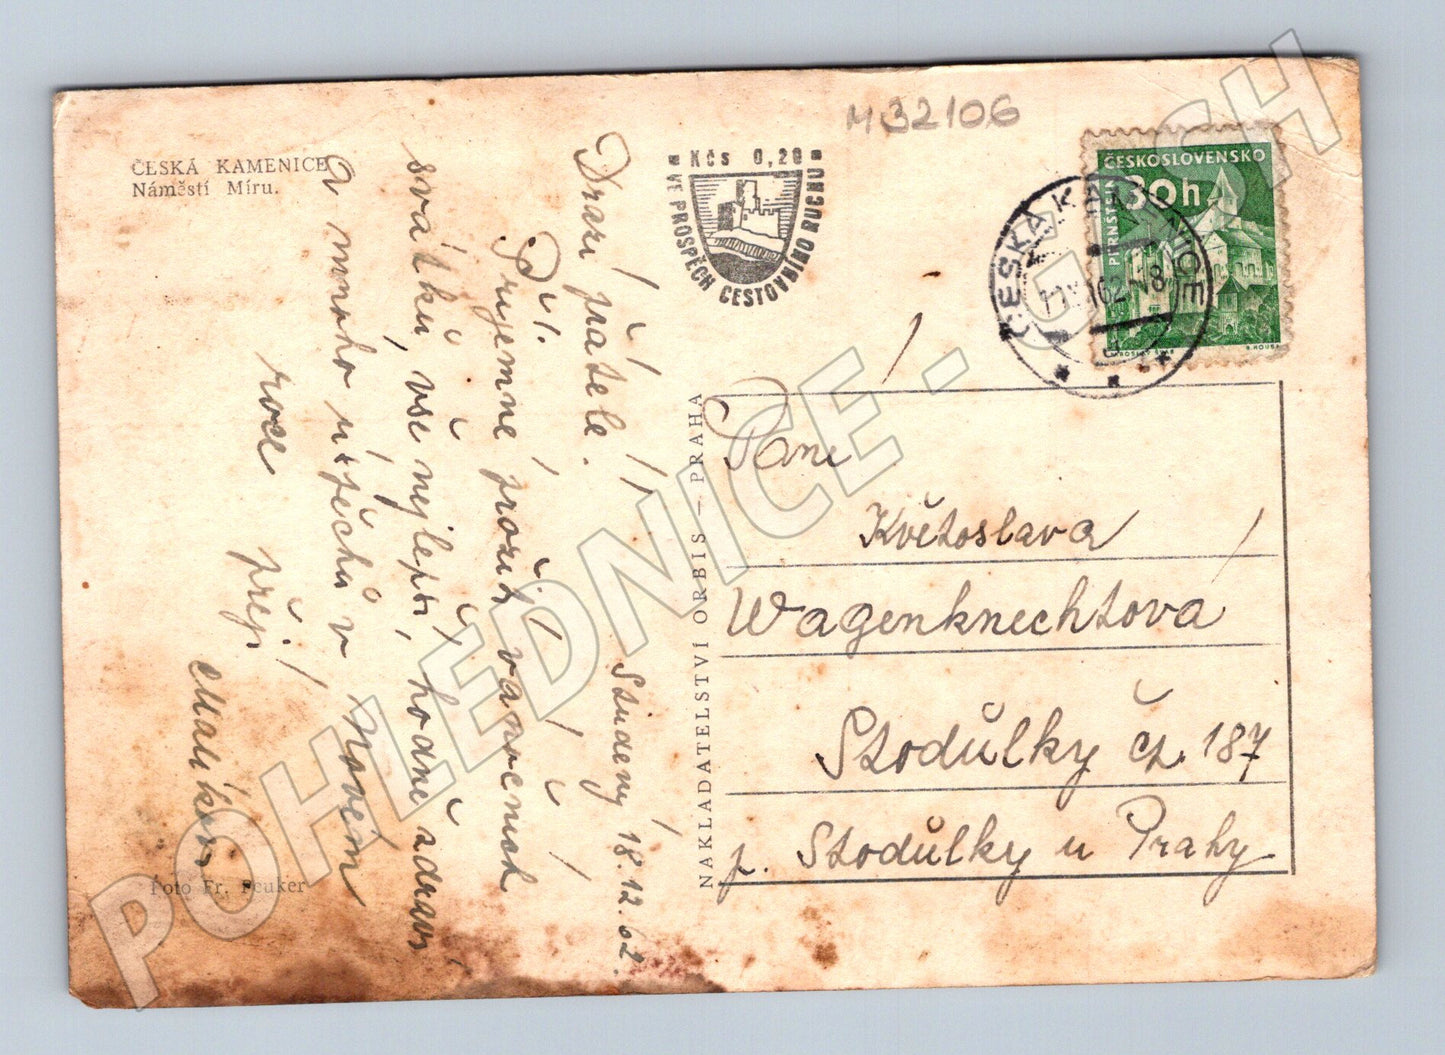 ČESKÁ KAMENICE
Náměstí Míru.
M32106
Kčs 0,20
VE PROSPĚCH CESTOVNÍHO RUCHU
ČESKOSLOVENSKO
30h
PERNŠTEJN
ČESKÁ KAMENICE
Studený 18.12.62.
Drazí přátelé.
Příjemné prožití vánočních
svátků, vše nejlepší, hodně zdraví
a mnoho úspěchů v Novém
roce přejí
NAKLADATELSTVÍ ORBIS — PRAHA
Paní
Květoslava
Wagenknechtová
Stodůlky čp. 187
p. Stodůlky u Prahy
Foto Fr. Peuker
POHLEDNICE - G - SCH